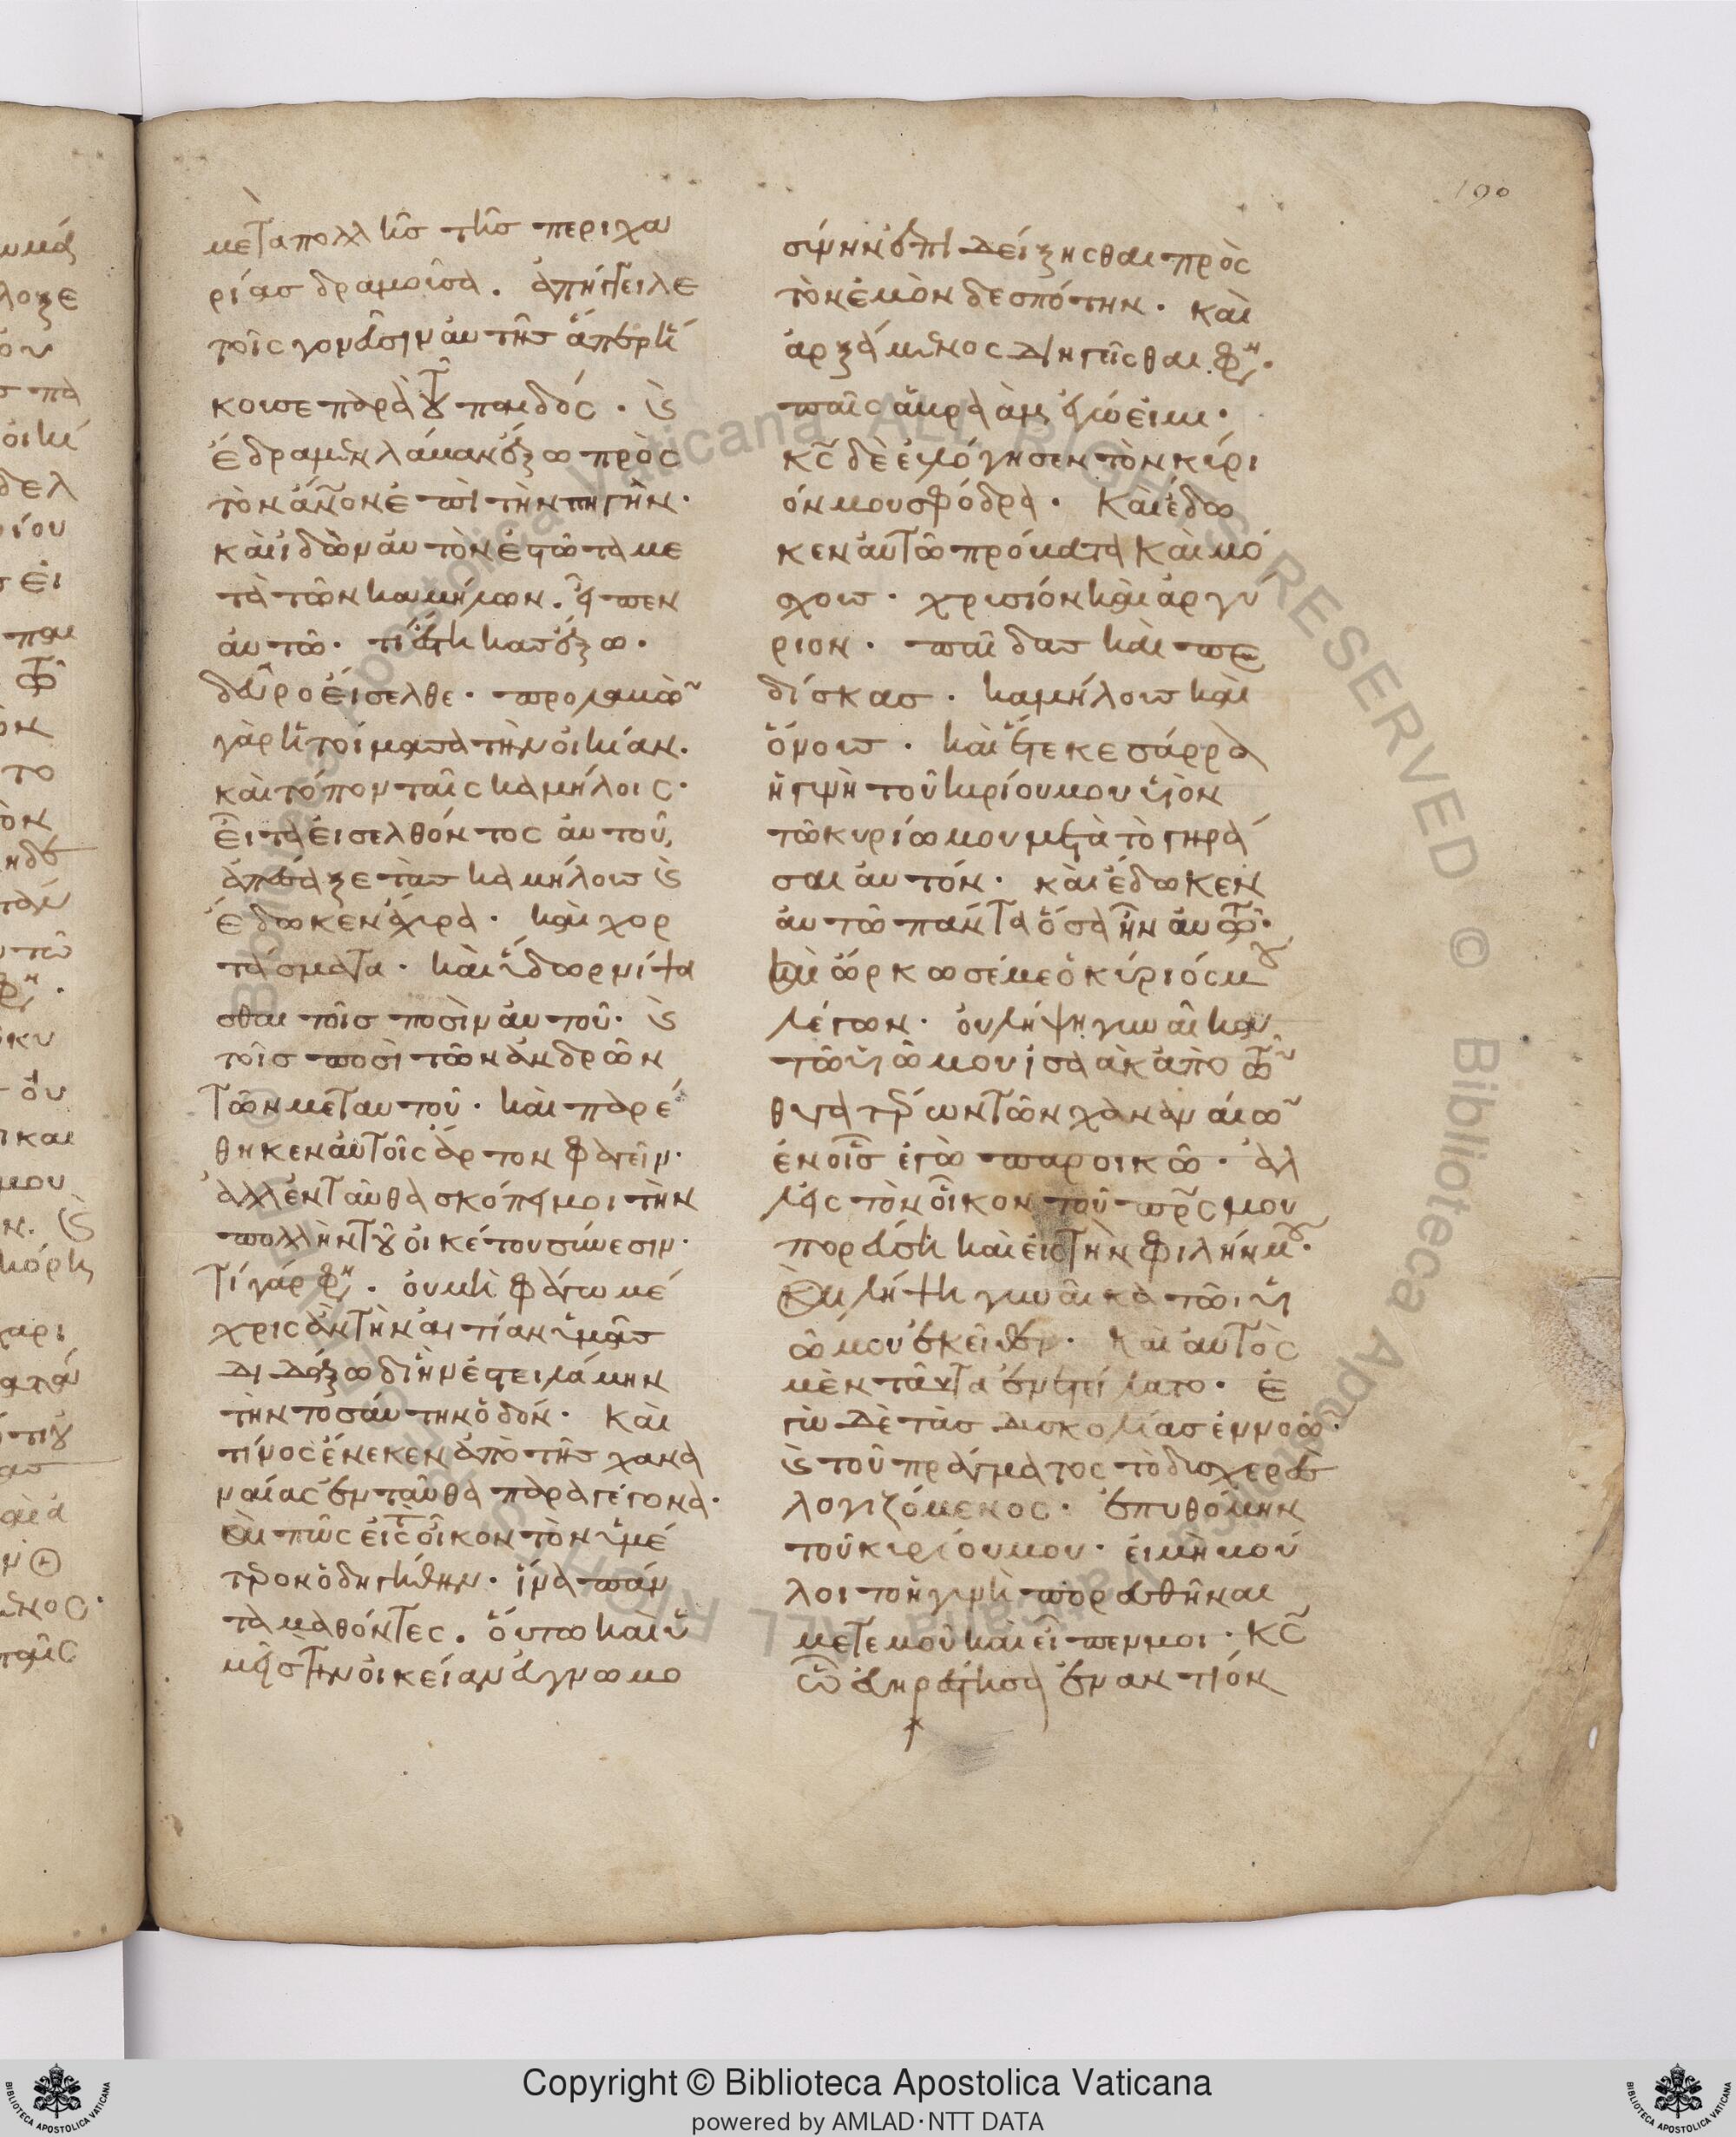 190
μετὰ πολλῆς τῆς περιχα
ρίας δραμοῦσα. ἀπήγγειλε
τοῖς γονεῦσιν αὐτῆς ἅπερ ἤ
κουσε παρὰ τοῦ παιδός. καὶ
ἔδραμεν λάβαν ἔξω πρὸς
τὸν ἄνον ἐπὶ τὴν πηγὴν.
καὶ ἰδὼν αὐτὸν ἑστῶτα με
τὰ τῶν καμήλων. εἶπεν
αὐτῶ. τί ἕστηκας ἔξω.
δεῦρο εἴσελθε. προλαβὼν
γὰρ ἡτοίμασα τὴν οἰκίαν.
καὶ τόπον ταῖς καμήλοις.
εἶτα εἰσελθόντος αὐτοῦ,
ἀπέσαξε τὰς καμήλους καὶ
ἔδωκεν ἄχυρα. καὶ χορ
τάσματα. καὶ ὕδωρ νίψα
σθαι τοῖς ποσὶν αὐτοῦ. καὶ
τοῖς ποσὶ τῶν ἀνδρῶν
τῶν μετ αυτοῦ. καὶ παρέ
θηκεν αὐτοῖς ἄρτον φαγεῖν.
ἀλλ ἐνταῦθα σκόπει μοι τὴν
πολλὴν τοῦ οἰκέτου σύνεσιν.
τί γάρ φησιν. οὐ μὴ φάγω μέ
χρις ἂν τὴν αἰτίαν ὑμᾶς
διδάξω δι ἣν ἐστειλάμην
τὴν τοσαύτην ὁδόν. καὶ
τίνος ἕνεκεν ἀπὸ τῆς χανα
ναίας ἐνταῦθα παραγέγονα.
καὶ πῶς εἰς τὸν οἶκον τὸν ὑμέ
τερον ὁδηγήθην. ἵνα πάν
τα μαθόντες. οὕτω καὶ ὑ
μεῖς τὴν οἰκείαν εὐγνωμο
σύνην ἐπιδείξησθαι πρὸς
τὸν ἐμὸν δεσπότην. καὶ
ἀρξάμενος διηγεῖσθαι φησιν.
παῖς ἄβρααμ ἐγώ εἰμι.
κς δὲ εὐλόγησεν τὸν κύρι
όν μου σφόδρα. καὶ ἔδω
κεν αὐτῶ πρόβατα καὶ μό
σχους. χρυσίον καὶ ἀργύ
ριον. παῖδας καὶ παι
δίσκας. καμήλους καὶ
ὄνους. καὶ ἔτεκε σάρρα
ἡ γυνὴ τοῦ κυρίου μου υἱὸν
τῶ κυρίω μου μετὰ τὸ γηρά
σαι αὐτόν. καὶ ἔδωκεν
αὐτῶ πάντα ὅσα ἦν αὐτῶ.
καὶ ὥρκωσέ με ὁ κύριός μου
λέγων. οὐ λήψη γυναῖκα
τῶ υἱῶ μου ἰσαὰκ ἀπὸ τῶν
θυγατέρων τῶν χαναναίων
ἐν οἷς ἐγὼ παροικῶ. ἀλ
λ εἰς τὸν οἶκον τοῦ πρς μου
πορεύση καὶ εἰς τὴν φυλήν μου.
καὶ λήψη γυναῖκα τῶ υἱ
ῶ μου ἐκεῖθεν. καὶ αὐτὸς
μὲν ταῦτα ἐνετείλατο. ἐ
γὼ δὲ τὰς δυσκολίας ἐννοῶν.
καὶ τοῦ πράγματος τὸ δυσχερὲς
λογιζόμενος. ἐπυθόμην
τοῦ κυρίου μου. εἰ μὴ βού
λοιτο ἡ γυνὴ πορευθῆναι
μετ εμοῦ καὶ εἶπεν μοι. κς
ὧ εὐηρέστησα ἐναντίον
Copyright © Biblioteca Apostolica Vaticana
powered by AMLAD·NTT DATA